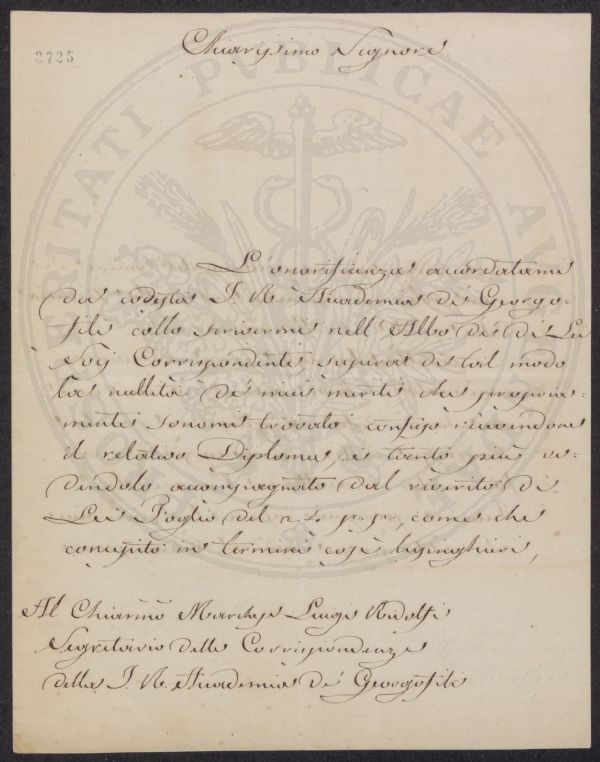 2725
Chiarissimo Signore
L'onorificenza accordatami
da codesta I. R. Accademia dei Georgo-
fili collo scrivermi nell'Albo de' di Lei
Socj Corrispondenti, supera di tal modo
la nullità de' miei meriti che propria-
mente sonomi trovato confuso ricevendone
il relativo Diploma, e tanto più ve-
dendolo accompagnato dal riverito di
Lei Foglio del 24 p. p., come che
concepito in termini così lusinghieri,
Al Chiarmo Marchese Luigi Ridolfi
Segretario delle Corrispondenze
della I. R. Accademia de' Georgofili
VRITATI PVBLICAE